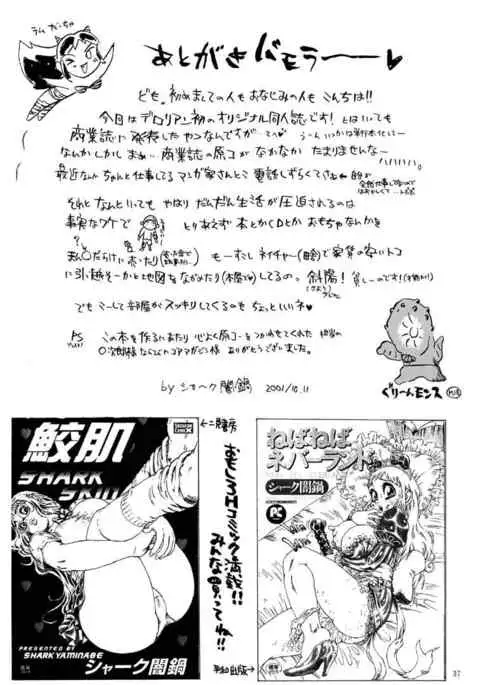 ラム がーっちゃ
あとがきバモラーー
ども。初めましての人もおなじみの人も こんちは!!
今日は デロリアン初のオリジナル同人誌です! とはいっても
商業誌に発表したやつなんですが
なんか しかし まぁ… 商業誌の原コがなかなか たまりませんなー
最近なんかちゃんと仕事してるマンガ家さんとこ電話しずらくてさぁ
それと なんといっても やはり だんだん生活が圧迫されるのは
事実なワケで とりあえず 本とかCDとか おもちゃなんかを
まん〇だらけに売ったり もーすこし ネイチャーで家賃の安いトコ
に引っ越そーかと地図をながめたりしてるの。斜陽!
でも こーして部屋がスッキリしてくるのも ちょっといいネ
PS この本を作るにあたり 心よく原コーをつかわせてくれた
〇次郎様ならびにコアマガジン様 ありがとうございました。
by シャーク闇鍋 2001/10.11
ぐりーんモンス
鮫肌
SHARK
SKIN
PRESENTED BY
SHARK YAMINABE
シャーク闇鍋
おもしろHコミック満載!!
みんな買ってね!!
平和出版→
ねばねば
ネバーランド
シャーク闇鍋
37